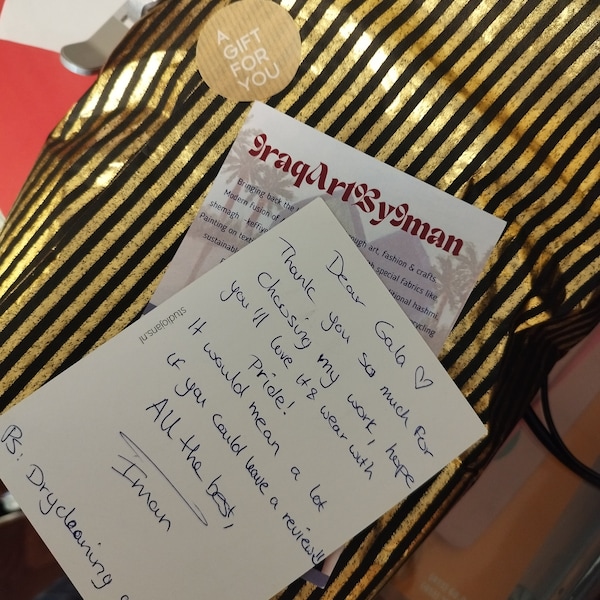 A
GIFT
FOR
YOU
IraqArtByIman
Bringing back the
ough art, fashion & crafts.
Modern fusion of
special fabrics like
shemagh
keffiy
sonal hashmi.
Painting on text
cycling
sustainable
studiojans.nl
Dear Gala ♡
Thank you so much for
choosing my work, hope
you'll love it & wear with
Pride!
It would mean a lot
if you could leave a review!!
All the best,
Iman
PS: Drycleaning